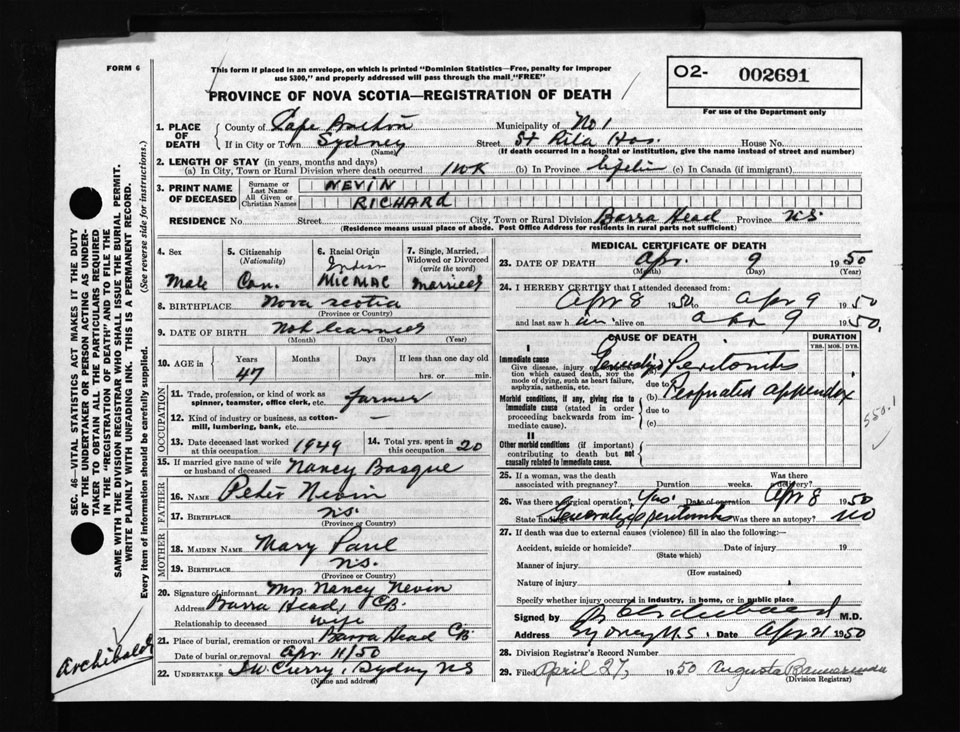 FORM 6
This form if placed in an envelope, on which is printed "Dominion Statistics—Free, penalty for improper
use $300," and properly addressed will pass through the mail "FREE"
PROVINCE OF NOVA SCOTIA—REGISTRATION OF DEATH
O2- 002691
For use of the Department only
SEC. 46—VITAL STATISTICS ACT MAKES IT THE DUTY
OF THE UNDERTAKER OR PERSON ACTING AS UNDER-
TAKER TO OBTAIN ALL THE PARTICULARS REQUIRED
IN THE "REGISTRATION OF DEATH" AND TO FILE THE
SAME WITH THE DIVISION REGISTRAR WHO SHALL ISSUE THE BURIAL PERMIT.
WRITE PLAINLY WITH UNFADING INK. THIS IS A PERMANENT RECORD.
Every item of information should be carefully supplied. (See reverse side for instructions.)
1. PLACE OF DEATH
County of Cape Breton Municipality of No 1
If in City or Town Sydney Street St Rita Hos. House No.
(Name) (If death occurred in a hospital or institution, give the name instead of street and number)
2. LENGTH OF STAY (in years, months and days)
(a) In City, Town or Rural Division where death occurred 1 WK (b) In Province lifetime (c) In Canada (if immigrant)
3. PRINT NAME OF DECEASED
Surname or Last Name NEVIN
All Given or Christian Names RICHARD
RESIDENCE No. Street City, Town or Rural Division Barra Head Province N.S.
(Residence means usual place of abode. Post Office Address for residents in rural parts not sufficient)
4. Sex Male
5. Citizenship (Nationality) Can.
6. Racial Origin Indian MICMAC
7. Single, Married, Widowed or Divorced (write the word) Married
8. BIRTHPLACE Nova Scotia
(Province or Country)
9. DATE OF BIRTH Not learned
(Month) (Day) (Year)
10. AGE in Years Months Days If less than one day
47 hrs. or min.
OCCUPATION
11. Trade, profession, or kind of work as
spinner, teamster, office clerk, etc. farmer
12. Kind of industry or business, as cotton-
mill, lumbering, bank, etc. —
13. Date deceased last worked at this occupation 1949 14. Total yrs. spent in this occupation 20
15. If married give name of wife or husband of deceased Nancy Basque
FATHER
16. NAME Peter Nevin
17. BIRTHPLACE N.S.
(Province or Country)
MOTHER
18. MAIDEN NAME Mary Paul
19. BIRTHPLACE N.S.
(Province or Country)
20. Signature of informant Mrs Nancy Nevin
Address Barra Head, CB.
Relationship to deceased wife
21. Place of burial, cremation or removal Barra Head CB
Date of burial or removal Apr 11/50
22. UNDERTAKER Curry, Sydney NS
(Name and address)
Archibald
MEDICAL CERTIFICATE OF DEATH
23. DATE OF DEATH Apr. 9 1950
(Month) (Day) (Year)
24. I HEREBY CERTIFY that I attended deceased from:
Apr 8 1950 to Apr 9 1950
and last saw him alive on Apr 9 1950.
CAUSE OF DEATH
DURATION
YRS. MOS. DYS.
I
Immediate cause
Give disease, injury or complication which caused death, not the mode of dying, such as heart failure, asphyxia, asthenia, etc.
Peritonitis
due to
Morbid conditions, if any, giving rise to immediate cause (stated in order proceeding backwards from immediate cause).
(b) Perforated appendix
due to
(c)
550.1
II
Other morbid conditions (if important) contributing to death but not causally related to immediate cause.
25. If a woman, was the death associated with pregnancy? Duration weeks. Was there a delivery?
26. Was there a surgical operation? Yes. Date of operation Apr 8 1950
State findings peritonitis Was there an autopsy? NO
27. If death was due to external causes (violence) fill in also the following:—
Accident, suicide or homicide? Date of injury 19
(State which)
Manner of injury
(How sustained)
Nature of injury
Specify whether injury occurred in industry, in home, or in public place
Signed by Archibald M.D.
Address Sydney N.S. Date Apr 21 1950
28. Division Registrar's Record Number
29. Filed April 27, 1950 Augusta
(Division Registrar)